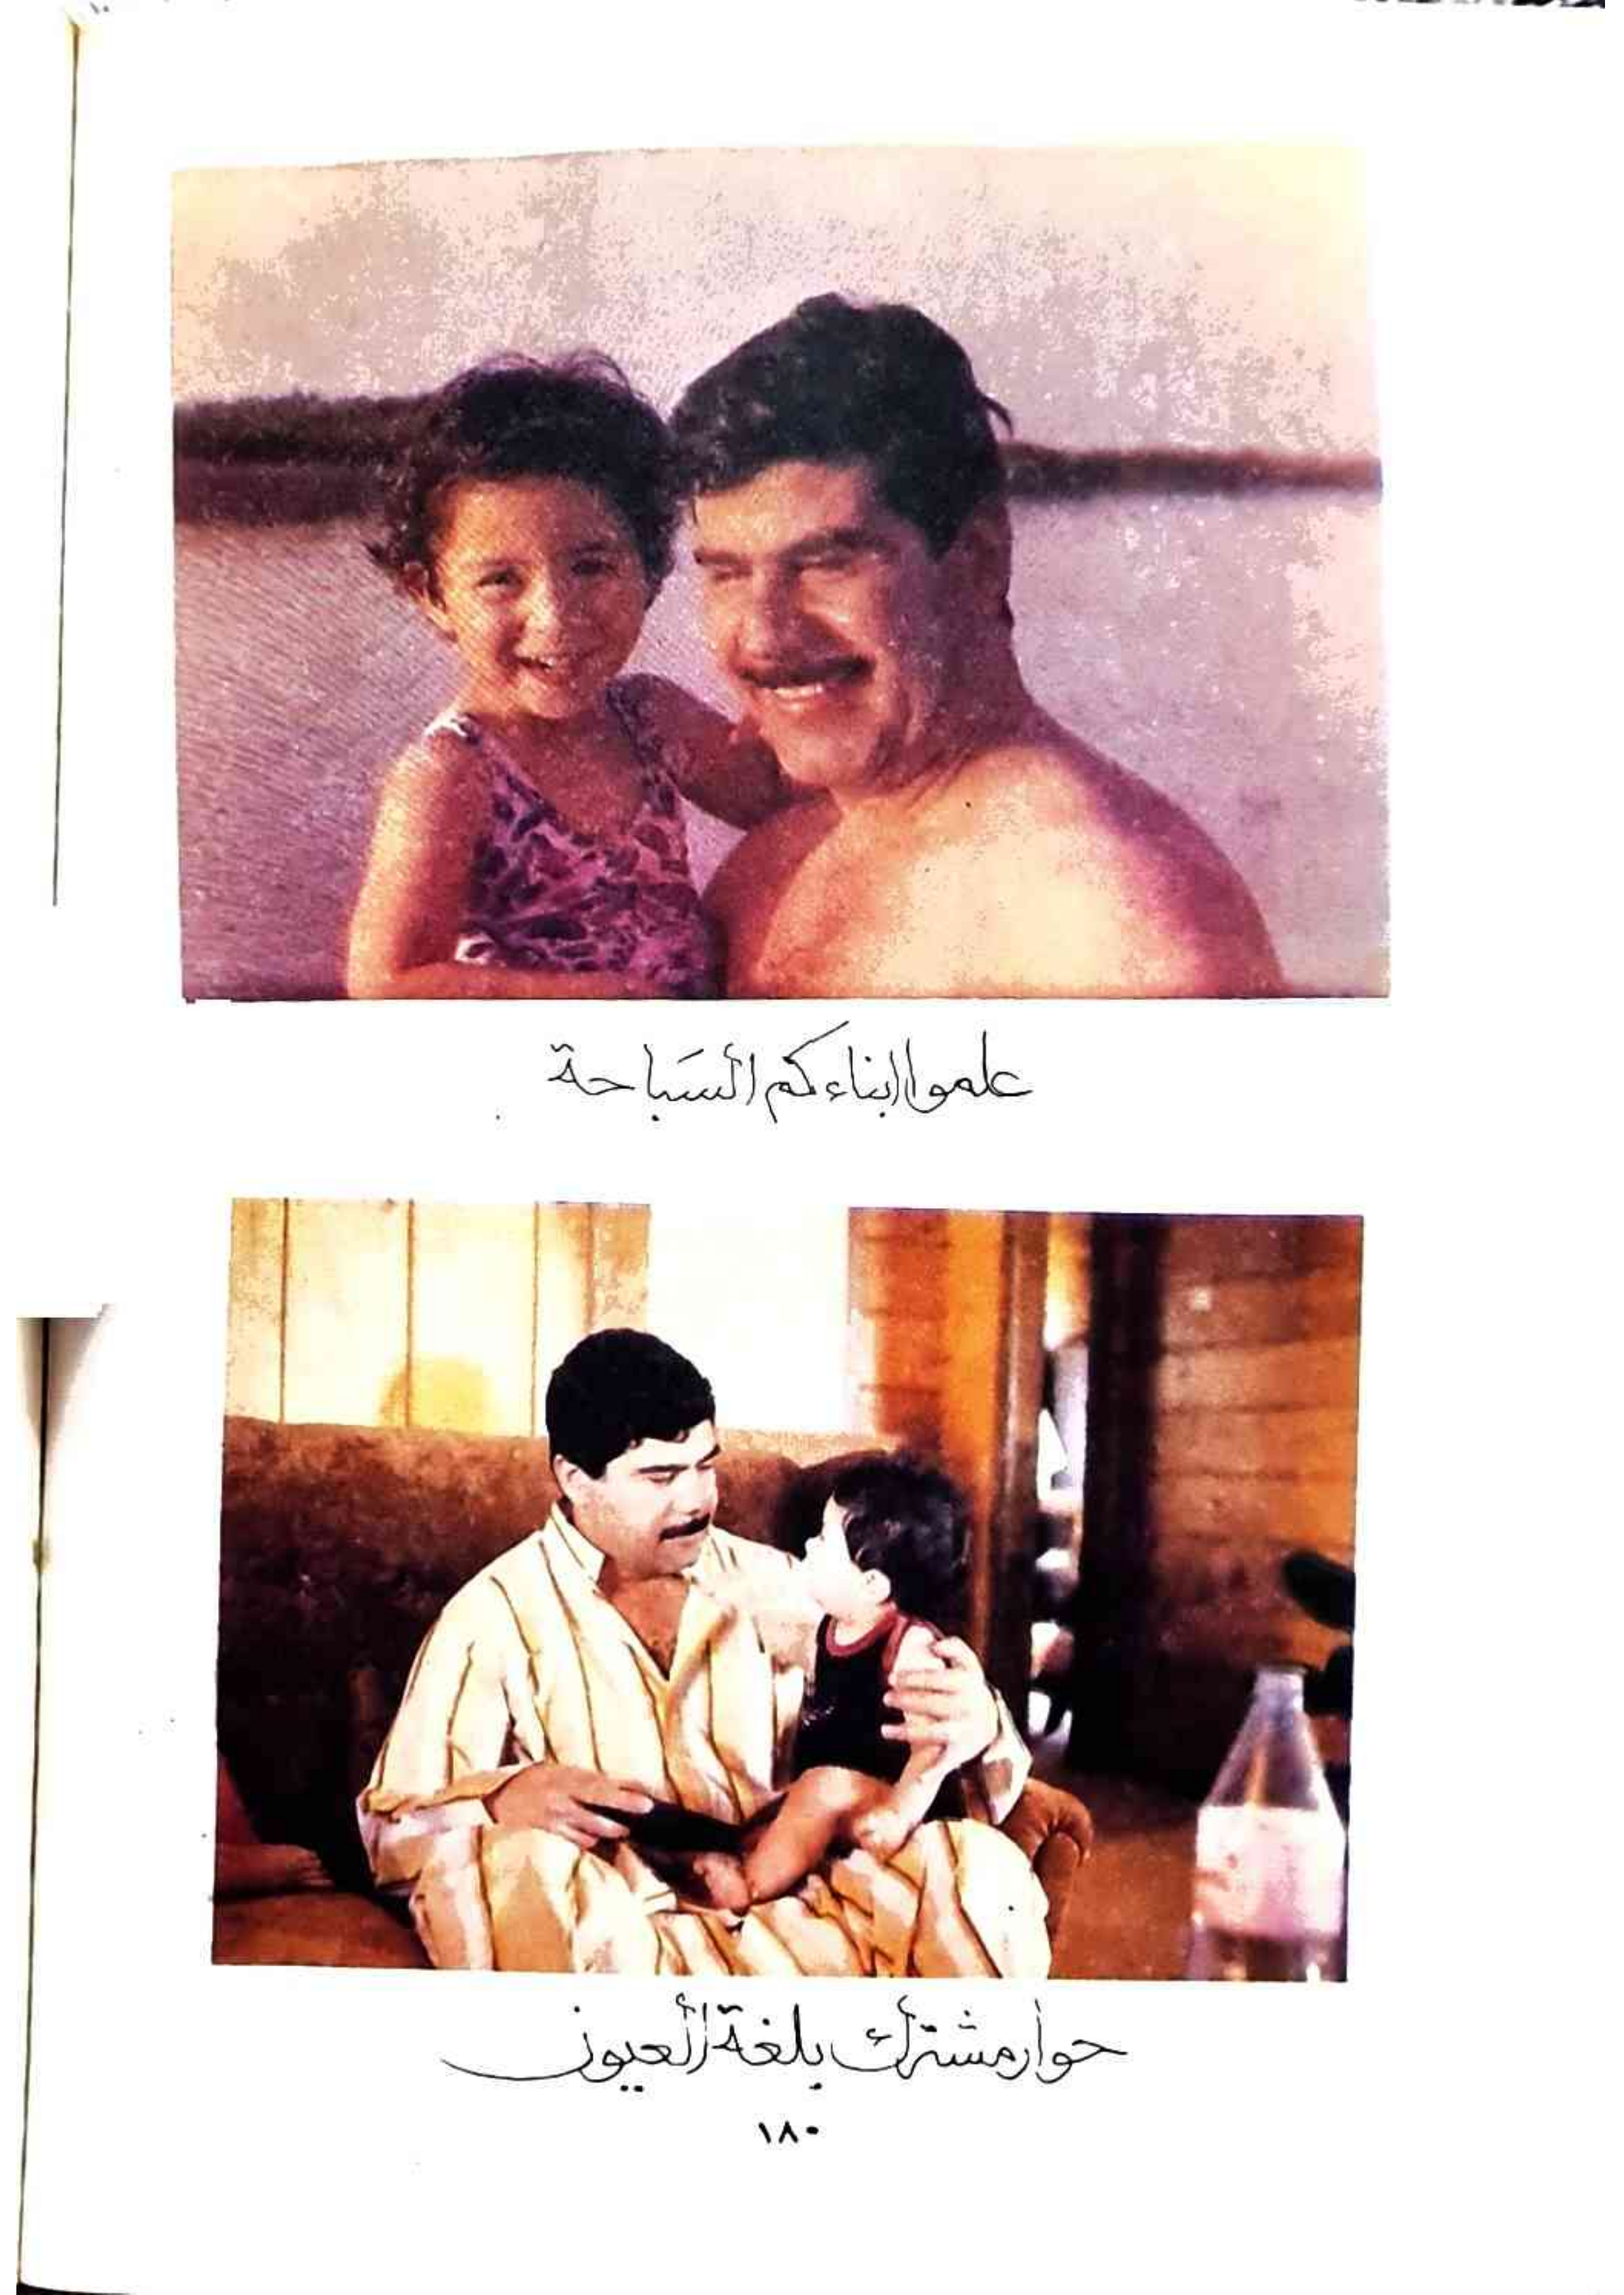 علموا ابناءكم السَباحة
حوار مشترك بلغة العيون
١٨٠